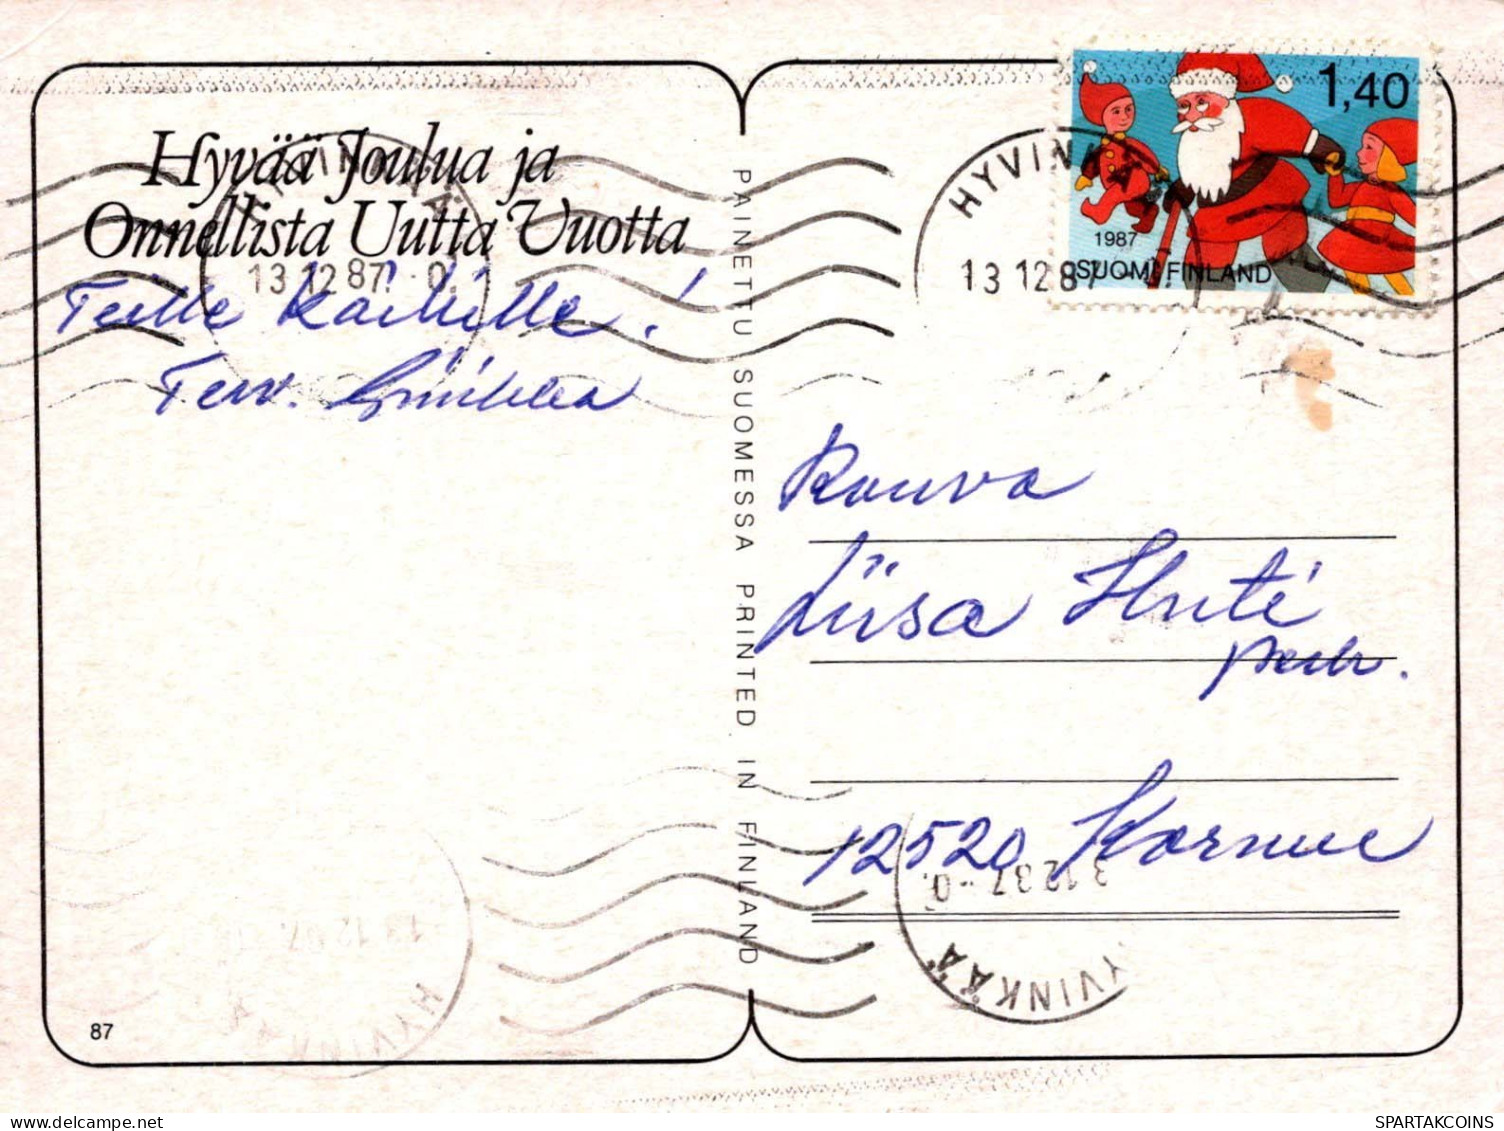 Hyvää Joulua ja
Onnellista Uutta Vuotta
Teille kaikille!
Terv. Sinikka
87
PAINETTU SUOMESSA PRINTED IN FINLAND
1,40
1987
SUOMI FINLAND
HYVINKÄÄ
13 12 87.-0.
HYVINKÄ
13 12 87
Rouva
Liisa Huti
perh.
12520 Kormu
3 12 87.-0.
YVINKÄÄ
13 12 87
HYVINKÄÄ
delcampe.net
SPARTAKCOINS